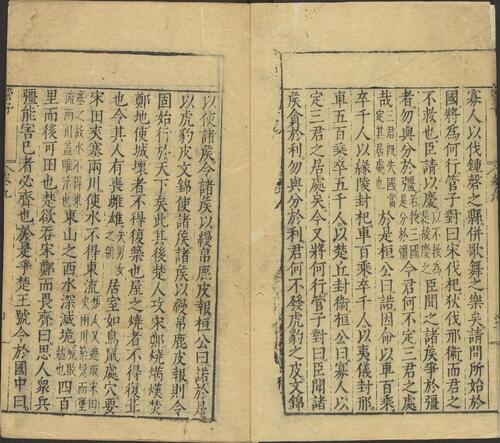 寡人以伐鍾磬之縣併歌舞之樂矣請問所始於
國將為何行管子對曰宋伐杞狄伐邢衞而君之
不救也臣請以慶以不救為是故慶之臣聞之諸矦爭於彊
者勿與分於彊若救三國是分於彊今君何不定三君之處
哉於是桓公曰諾因命以車百乗
卒千人以緣陵封杞車百乗卒千人以夷儀封邢
車五百乗卒五千人以楚丘封衞桓公曰寡人以
定三君之居處矣今又將何行管子對曰臣聞諸
矦貪於利勿與分於利君何不發虎豹之皮文錦
以使諸矦令諸矦以縵帛鹿皮報桓公曰諾於是
以虎豹皮文錦使諸矦諸矦以縵帛鹿皮報則令
固始行於天下矣此其後楚人攻宋鄭燒焫熯焚
鄭地使城壞者不得復築也屋之燒者不得復葺
也令其人有喪雌雄失男女之耦居室如鳥鼠處穴要
宋田夾塞兩川使水不得東流楚人又遮取宋田夾兩川築堤而壅
塞之故水不得東流兩川蓋雎汴也東山之西水深滅垝四百
里而後可田也楚欲吞宋鄭而畏齊曰思人衆兵
彊能害己者必齊也於是乎楚王號令於國中曰